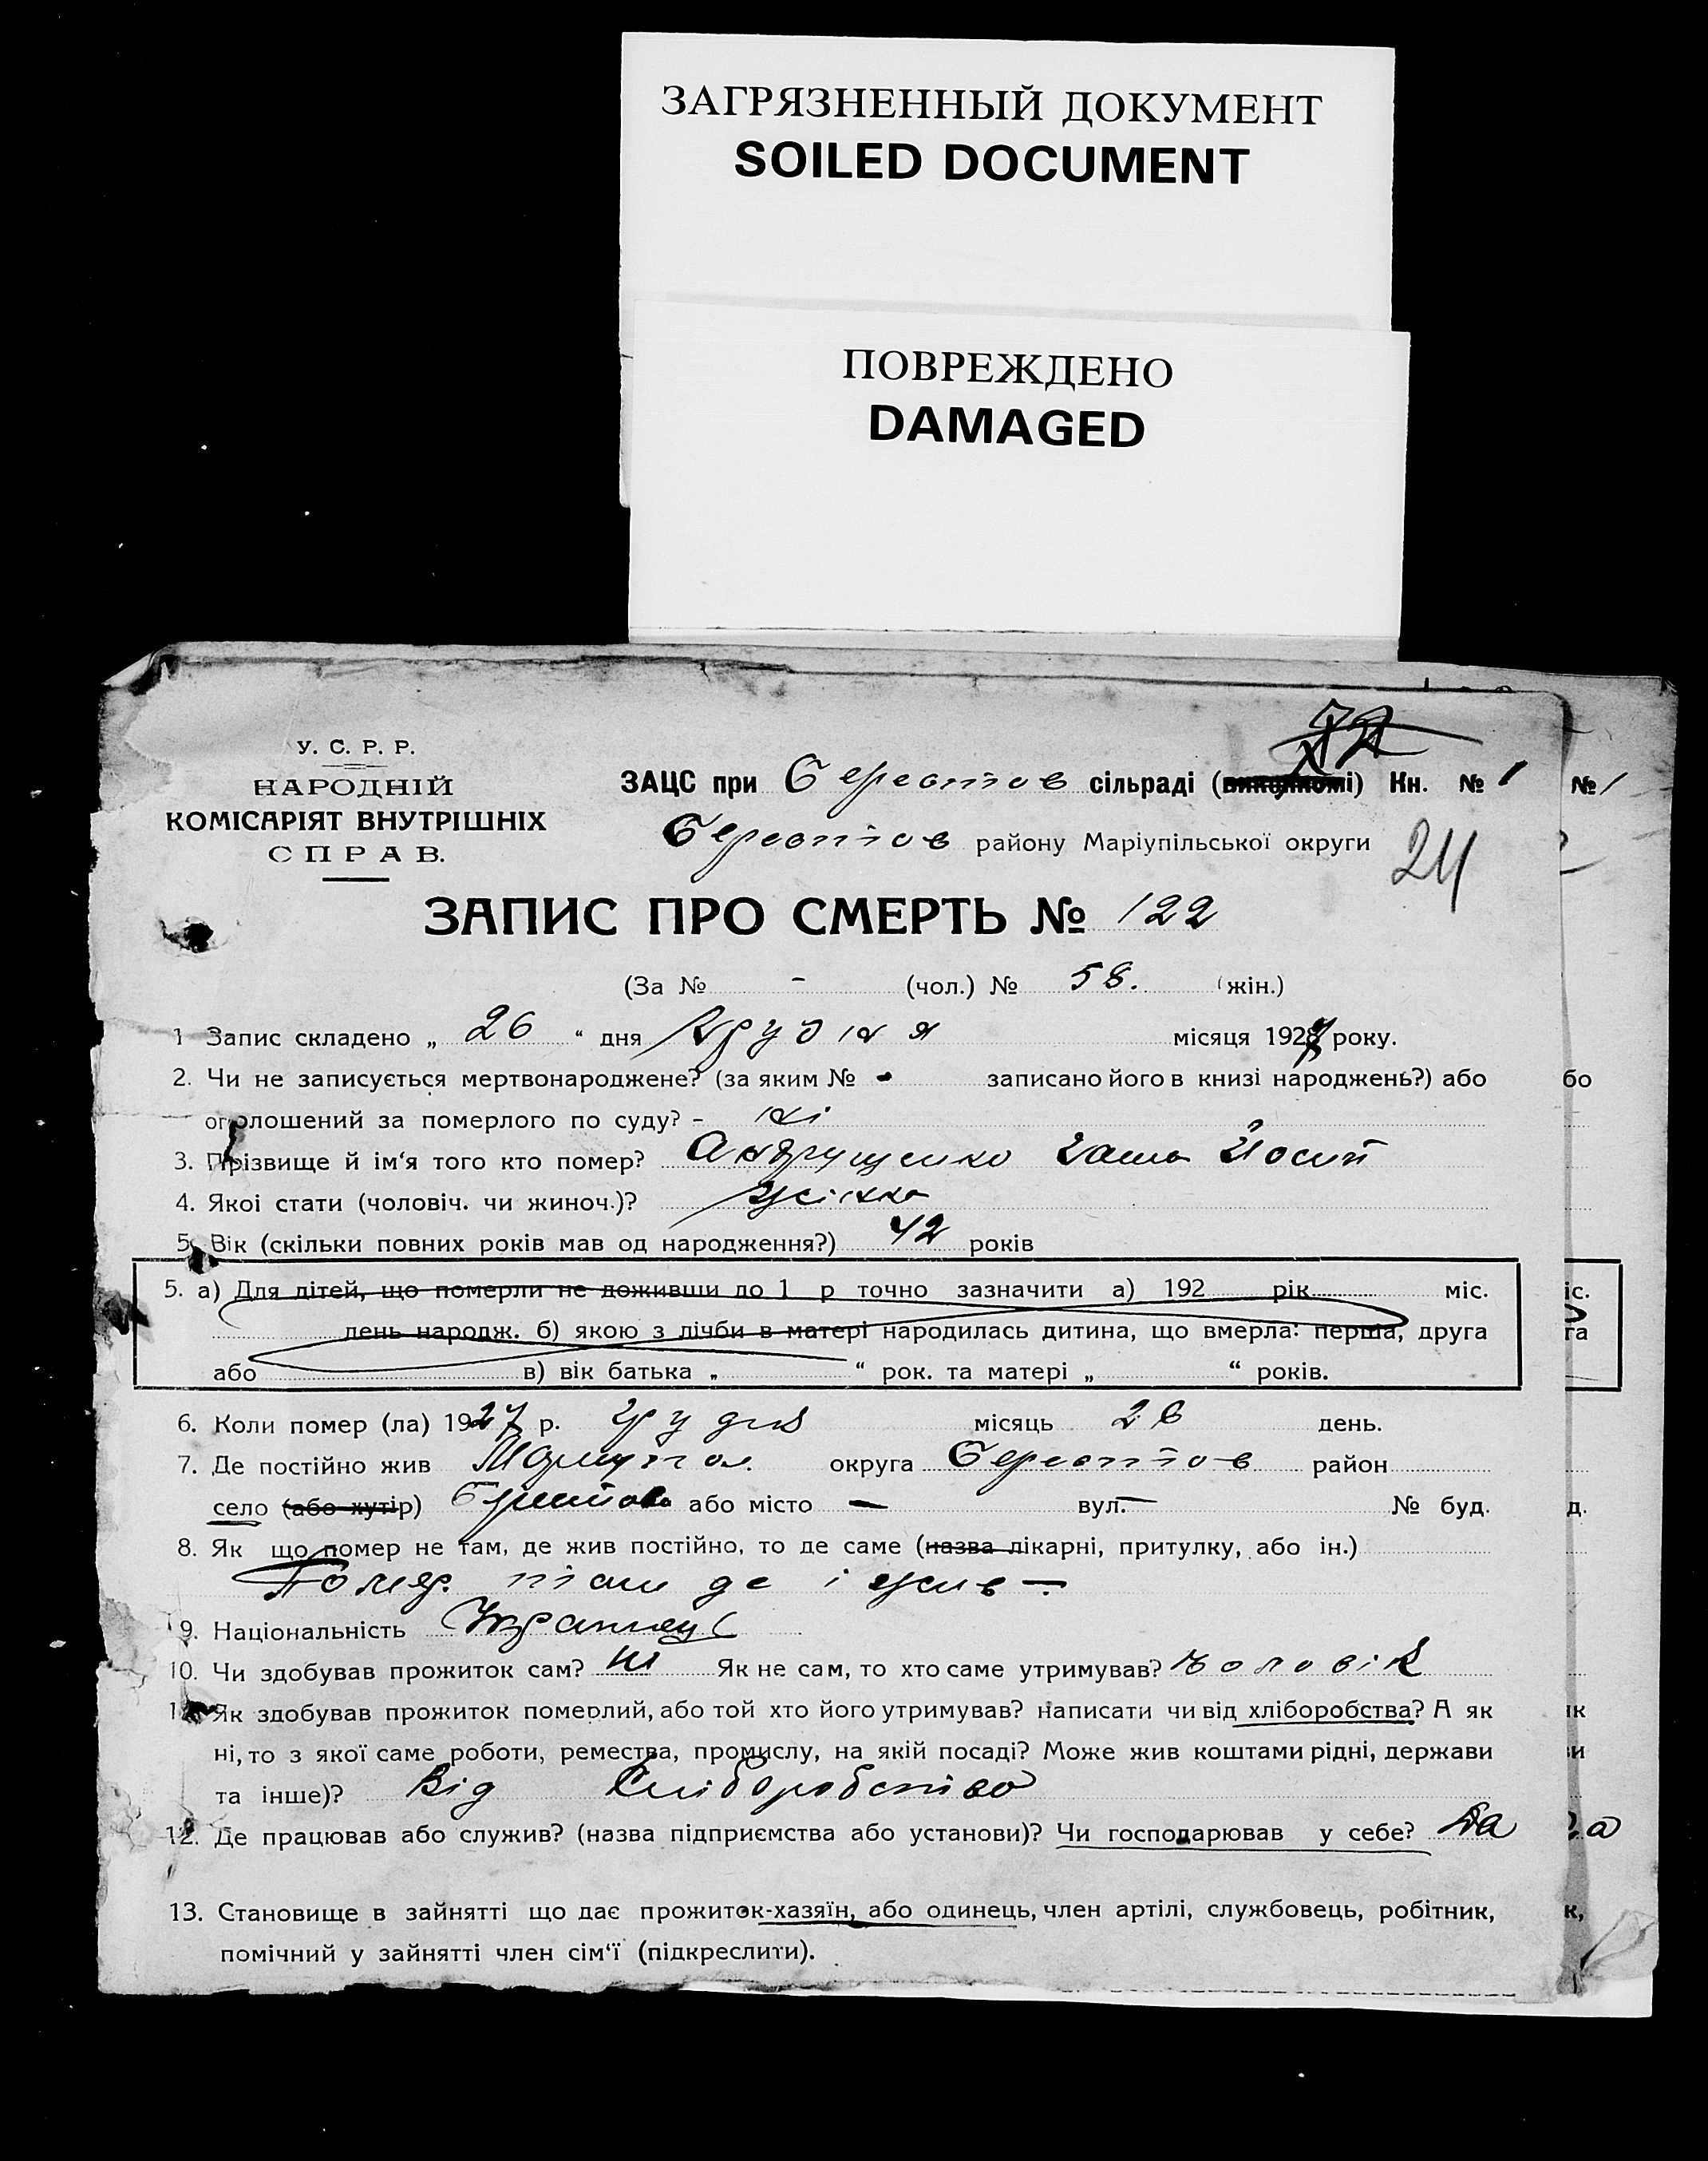 ЗАГРЯЗНЕННЫЙ ДОКУМЕНТ
SOILED DOCUMENT
ПОВРЕЖДЕНО
DAMAGED
У. С. Р. Р.
НАРОДНІЙ
КОМІСАРІЯТ ВНУТРІШНІХ
СПРАВ.
ЗАЦС при Берестов сільраді (виконкомі) Кн. № 1
Берестов району Маріупільської округи
24
ЗАПИС ПРО СМЕРТЬ № 122
(За № - (чол.) № 58. (жін.)
1 Запис складено „ 26 “ дня Грудня місяця 1927 року.
2. Чи не записується мертвонароджене? (за яким № - записано його в книзі народжень?) або
оголошений за померлого по суду? - ні
3. Прізвище й ім‘я того хто помер? Андрущенко
4. Якої стати (чоловіч. чи жиноч.)? жінка
5. Вік (скільки повних років мав од народження?) 42 років
5. а) Для дітей, що померли не доживши до 1 р точно зазначити а) 192 рік міс.
день народж. б) якою з лічби в матері народилась дитина, що вмерла: перша, друга
або в) вік батька „ “ рок. та матері „ “ років.
6. Коли помер (ла) 1927 р. грудня місяць 26 день.
7. Де постійно жив Мариупол. округа Берестов район
село (або хутір) або місто — вул. — № буд.
8. Як що помер не там, де жив постійно, то де саме (назва лікарні, притулку, або ін.)
Помер там де і жив —
9. Національність
10. Чи здобував прожиток сам? ні Як не сам, то хто саме утримував? чоловік
11. Як здобував прожиток померлий, або той хто його утримував? написати чи від хліборобства? А як
ні, то з якої саме роботи, ремества, промислу, на якій посаді? Може жив коштами рідні, держави
та інше)? Від Хліборобство
12. Де працював або служив? (назва підприємства або установи)? Чи господарював у себе? Да
13. Становище в зайнятті що дає прожиток-хазяїн, або одинець, член артілі, службовець, робітник,
помічний у зайнятті член сім‘ї (підкреслити).